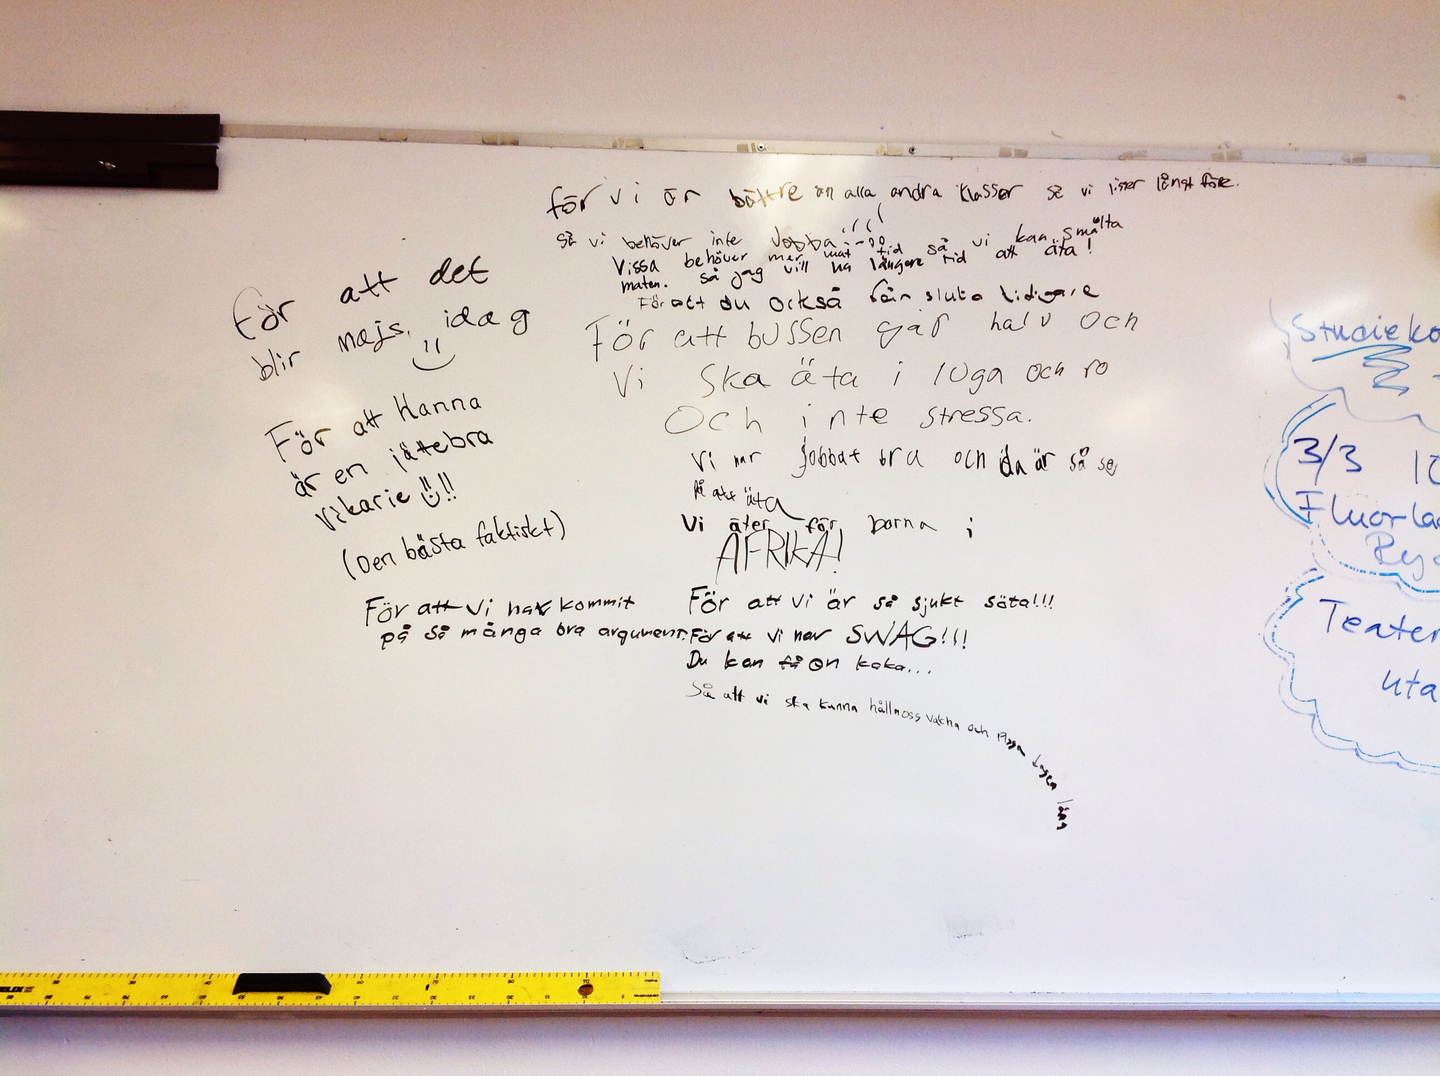 för vi är bättre än alla andra klasser så vi
så vi behöver inte jobba!!!
Vissa behöver mer mat tid så vi kan smälta
maten. så jag vill ha längre tid att äta!
För att du också får sluta tidigare
För att bussen går halv och
Vi ska äta i lúga och ro
Och inte stressa.
Vi har jobbat bra och då är så sej
på att äta
Vi äter för barna i
AFRIKA!
För att vi är så sjukt söta!!!
För att vi har SWAG!!!
Du kan få en kaka...
Så att vi ska kunna hålla oss vakna och pigga dagen lång
för att det
blir majs. idag
För att Hanna
är en jättebra
vikarie !!
(Den bästa faktiskt)
För att vi har kommit
på så många bra argument.
Studieko
3/3 10
Fluorla
Teater
uta